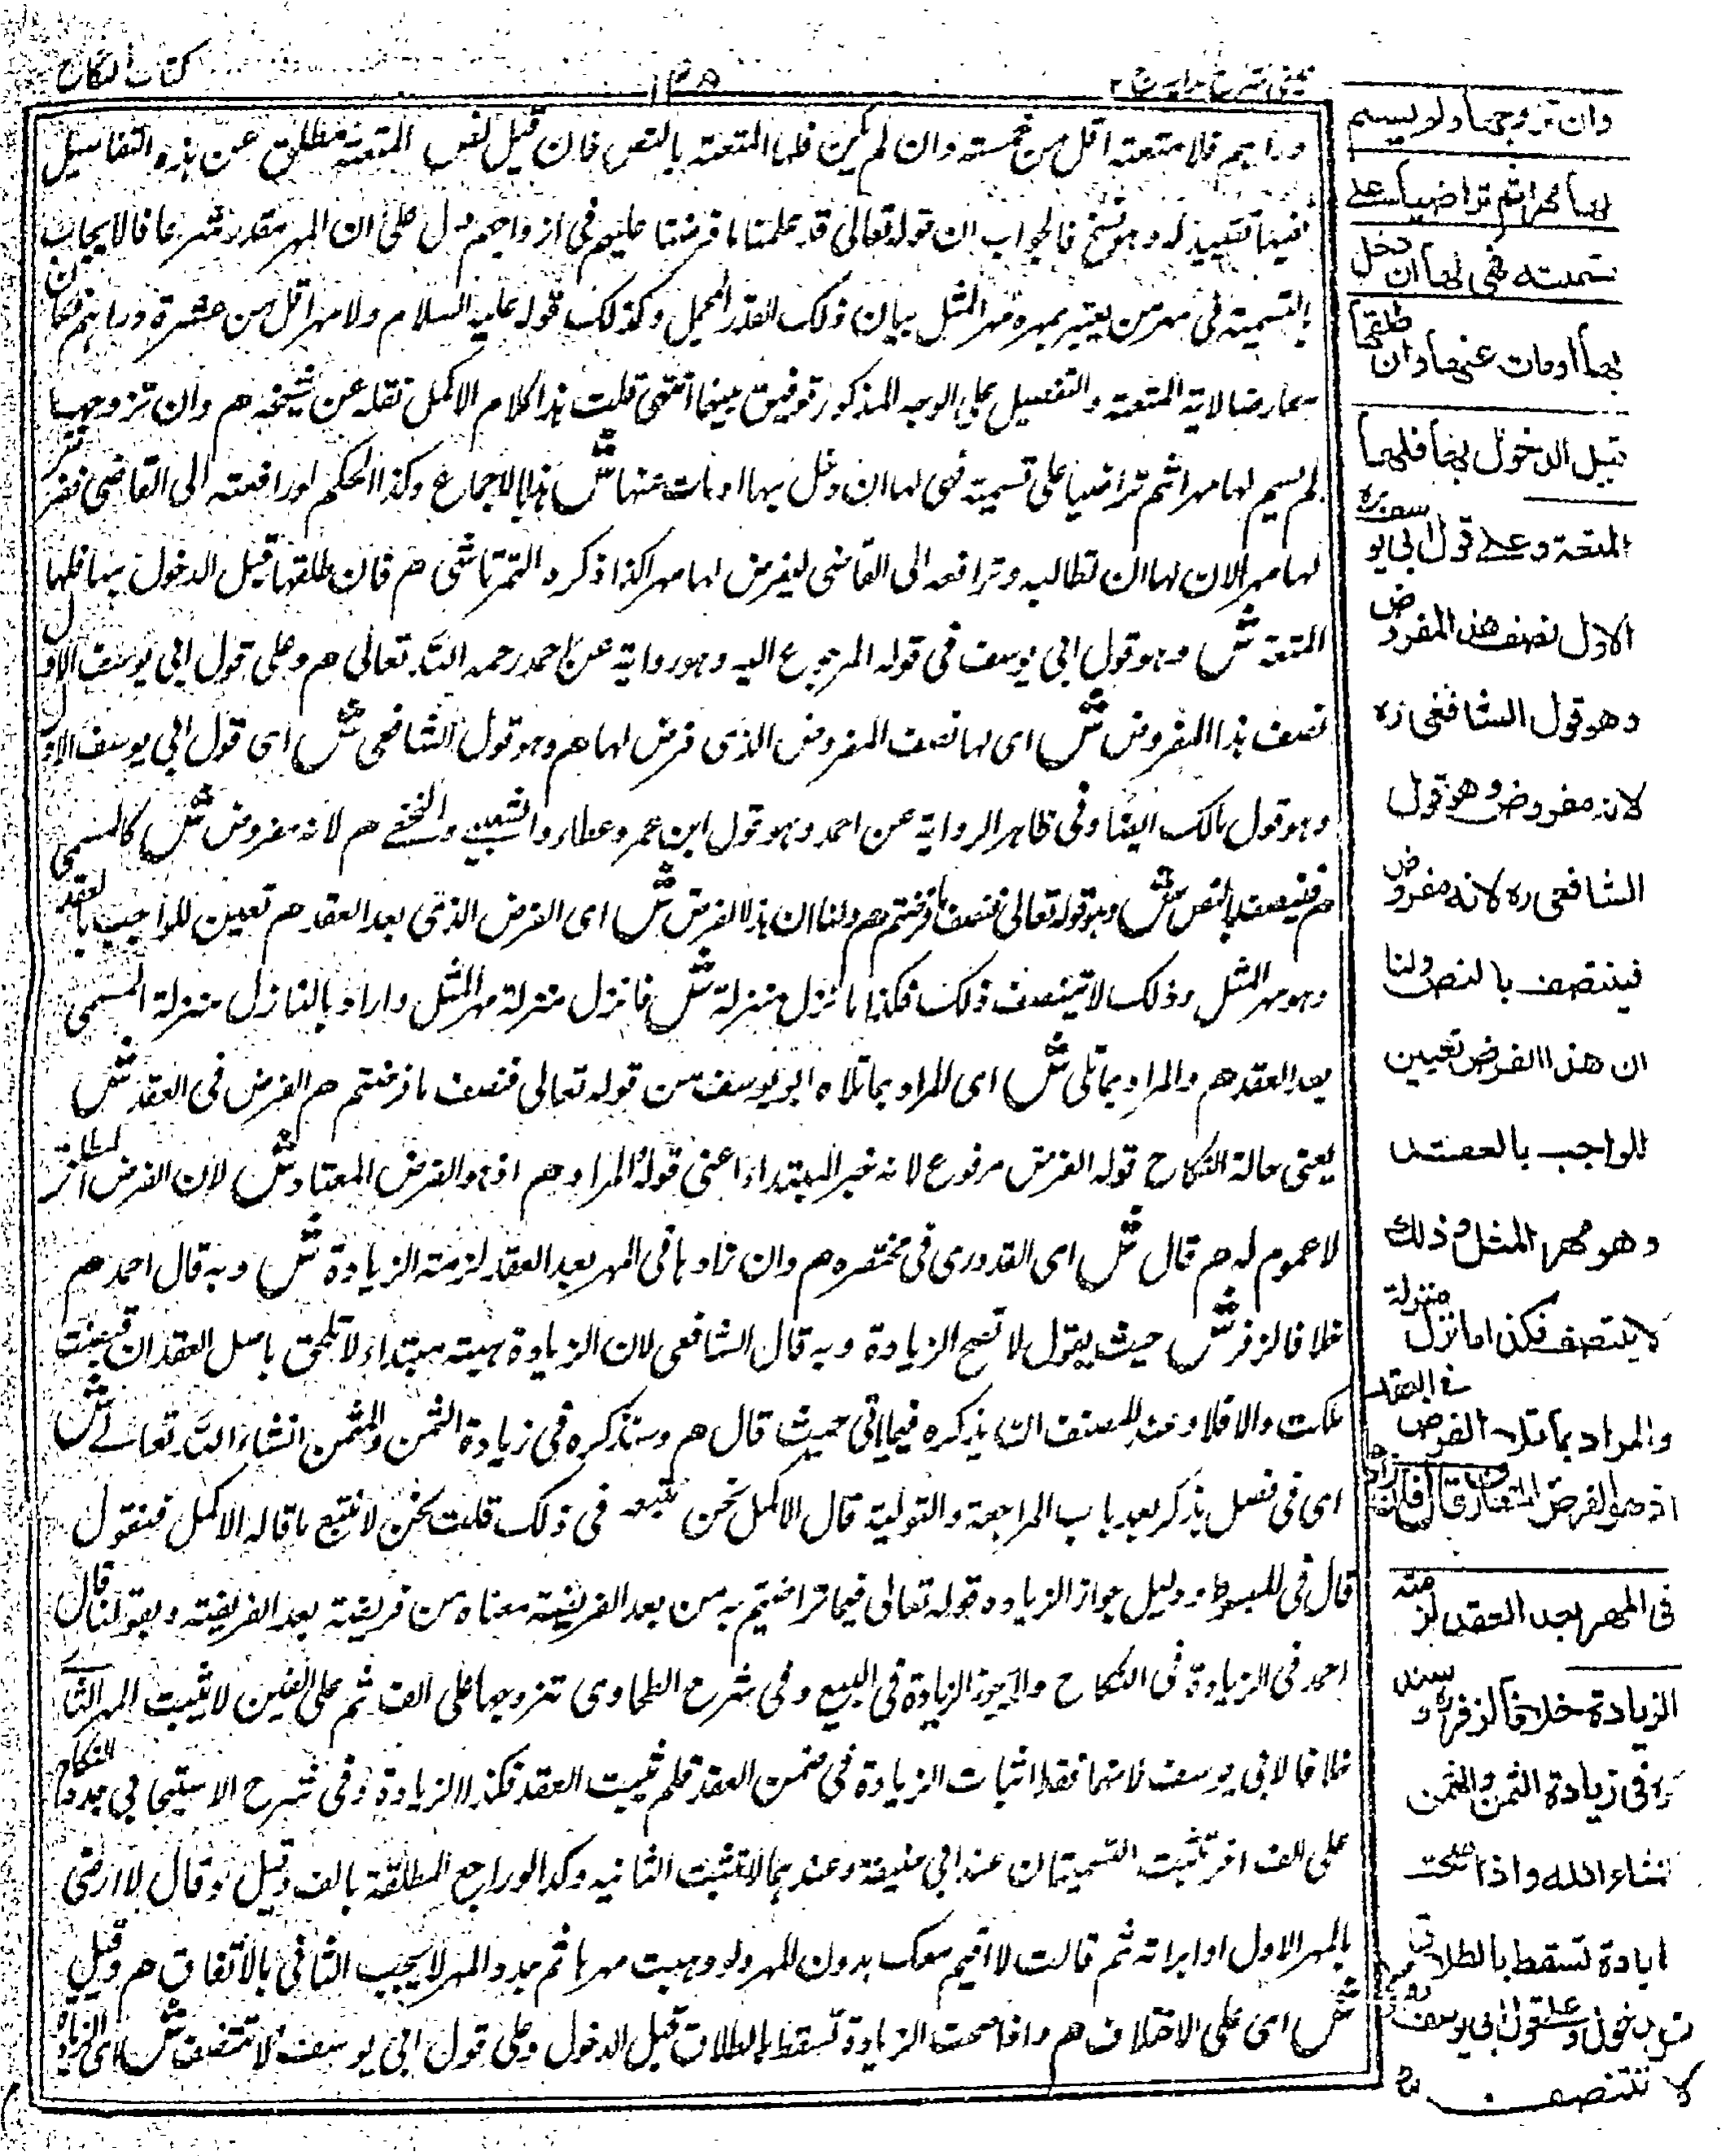 كتاب النكاح
١٣٥
عينى شرح هداية ج ٢
دراهم فلا متعته اقل من خمسته وان لم يكن فلها المتعته بالنص فان قيل نص المتعته مطلق عن هذه التفاصيل
تقييد له وهو نسخ فالجواب ان قوله تعالى قد علمنا ما فرضنا عليهم فى ازواجهم دل على ان المهر مقدر شرعا فالايجاب
بالتسمية فى مهر من يعتبر بمهره مهر المثل بيان ذلك القدر المجمل وكذلك قوله عليه السلام ولا مهر اقل من عشرة دراهم فكان
معارضا لاية المتعته والتفصيل على الوجه المذكور توفيق بينهما انتهى قلت هذا كلام الاكمل نقله عن شيخه هم وان تزوجها
لم يسم لها مهرا ثم تراضيا على تسمية فهى لها ان دخل بها او مات عنها ش هذا بالاجماع وكذا الحكم لو رافعته الى القاضى ففرض
لها مهرا لان لها ان تطالبه وترافعه الى القاضى ليفرض لها مهرا كذا ذكره التمرتاشى هم فان طلقها قبل الدخول بها فلها
المتعة ش وهو قول ابى يوسف فى قوله المرجوع اليه وهو رواية عن احمد رحمه الله تعالى هم وعلى قول ابى يوسف الاول
نصف هذا المفروض ش اى لها نصف المفروض الذى فرض لها هم وهو قول الشافعى ش اى قول ابى يوسف الاول
وهو قول مالك ايضا وفى ظاهر الرواية عن احمد وهو قول ابن عمر وعطاء والشعبى والنخعى هم لانه مفروض ش كالمسمى
هم فيتنصف بالنص ش وهو قوله تعالى فنصف ما فرضتم هم ولنا ان هذا الفرض ش اى الفرض الذى بعد العقد هم تعيين للواجب بالعقد
وهو مهر المثل وذلك لا يتنصف ذلك فكذا ما نزل منزلة ش فانزل منزلة مهر المثل واراد بالنازل منزلة المسمى
بعد العقد هم والمراد بما تلى ش اى المراد بما تلاه ابو يوسف من قوله تعالى فنصف ما فرضتم هم الفرض فى العقد ش
يعنى حالة النكاح قوله الفرض مرفوع لانه خبر المبتداء اعنى قوله المراد هم اذ هو الفرض المعتاد ش لان الفرض المطلق
لا عموم له هم قال ش اى القدورى فى مختصره هم وان زادها فى المهر بعد العقد لزمته الزيادة ش وبه قال احمد هم
خلافا لزفر ش حيث يقول لا تصح الزيادة وبه قال الشافعى لان الزيادة هبته مبتداء لا تلحق باصل العقد ان قبضت
ملكت والا فلا وعد المصنف ان يذكره فيما ياتى حيث قال هم وسنذكره فى زيادة الثمن والمثمن انشاء الله تعالى ش
اى فى فصل يذكر بعد باب المرابحة والتولية قال الاكمل نحن نتبعه فى ذلك قلت نحن لا نتبع ما قاله الاكمل فنقول
قال فى المبسوط ودليل جواز الزيادة قوله تعالى فيما تراضيتم به من بعد الفريضة معناه من فريضة بعد الفريضة وبقولنا قال
احمد فى الزيادة فى النكاح ولا يجوز الزيادة فى البيع وفى شرح الطحاوى تزوجها على الف ثم على الفين لا يثبت المهر الثانى
خلافا لابى يوسف لانهما قصدا اثبات الزيادة فى ضمن العقد فلم يثبت العقد فكذا الزيادة وفى شرح الاسبيجابى جددا النكاح
على الف اخر تثبت التسميتان عند ابى حنيفة وعندهما لا تثبت الثانية وكذا لو راجع المطلقة بالف وقيل لو قال لا ارضى
بالمهر الاول او ابراته ثم قالت لا اقيم معك بدون المهر ولو وهبت مهرها ثم جدد المهر لا يجب الثانى بالاتفاق هم وقيل
ش اى على الاختلاف هم واذا صحت الزيادة تسقط بالطلاق قبل الدخول وعلى قول ابى يوسف لا تتنصف ش اى الزيادة
وان تزوجها ولم يسم
لها مهرا ثم تراضيا على
تسمته فهى لها ان دخل
بها او مات عنها وان طلقها
قبل الدخول بها فلها
المتعة وعلى قول ابى يوسف ره
الاول نصف هذا المفروض
وهو قول الشافعى ره
لانه مفروض وهو قول
الشافعى ره لانه مفروض
فيتنصف بالنص ولنا
ان هذا الفرض تعيين
للواجب بالعقد
وهو مهر المثل وذلك
لا يتنصف فكذا ما نزل منزلة
والمراد بما تلا الفرض فى العقد
اذ هو الفرض المتعارف قال فان زاد
فى المهر بعد العقد لزمته
الزيادة خلافا لزفر ره وسنذ
كره فى زيادة الثمن والمثمن
انشاء الله واذا صحت
الزيادة تسقط بالطلاق
قبل الدخول وعلى قول ابى يوسف ره
لا تتنصف